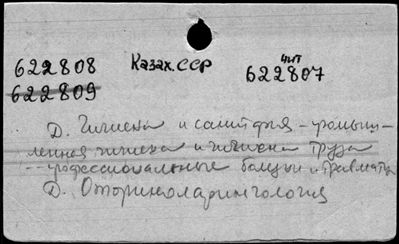 622808 Казах.ССР чит 622807
622809
Д. Гигиена и санит. физ-промыш-
ленная гигиена и гигиена труда
-- профессиональные болезни и травмат.
Д. Оториноларингология